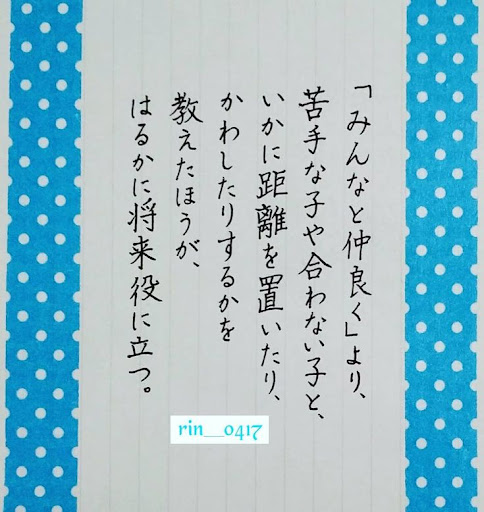 「みんなと仲良く」より、
苦手な子や合わない子と、
いかに距離を置いたり、
かわしたりするかを
教えたほうが、
はるかに将来役に立つ。
rin__0417